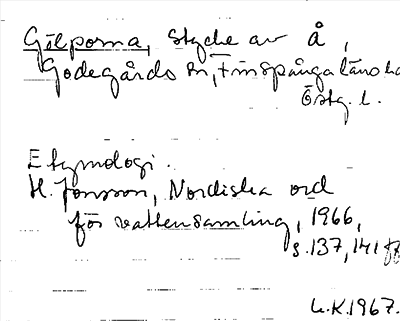 Gölporna, stycke av å,
Godegårds sn, Finspånga läns hd
Östg. l.
Etymologi.
H. Jonsson, Nordiska ord
för vattensamling, 1966,
s. 137, 141 ff
L.K. 1967.